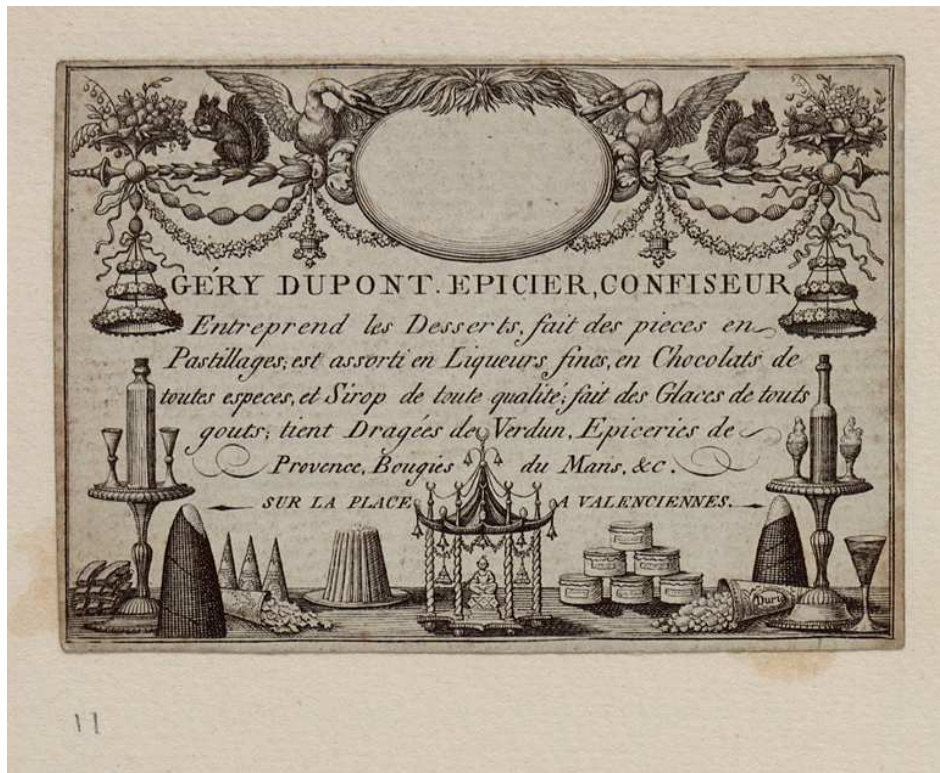 GÉRY DUPONT. EPICIER, CONFISEUR
Entreprend les Desserts, fait des pieces en
Pastillages; est assorti en Liqueurs fines, en Chocolats de
toutes especes, et Sirop de toute qualité; fait des Glaces de touts
gouts; tient Dragées de Verdun, Epiceries de
Provence, Bougies du Mans, &c.
SUR LA PLACE A VALENCIENNES.
11